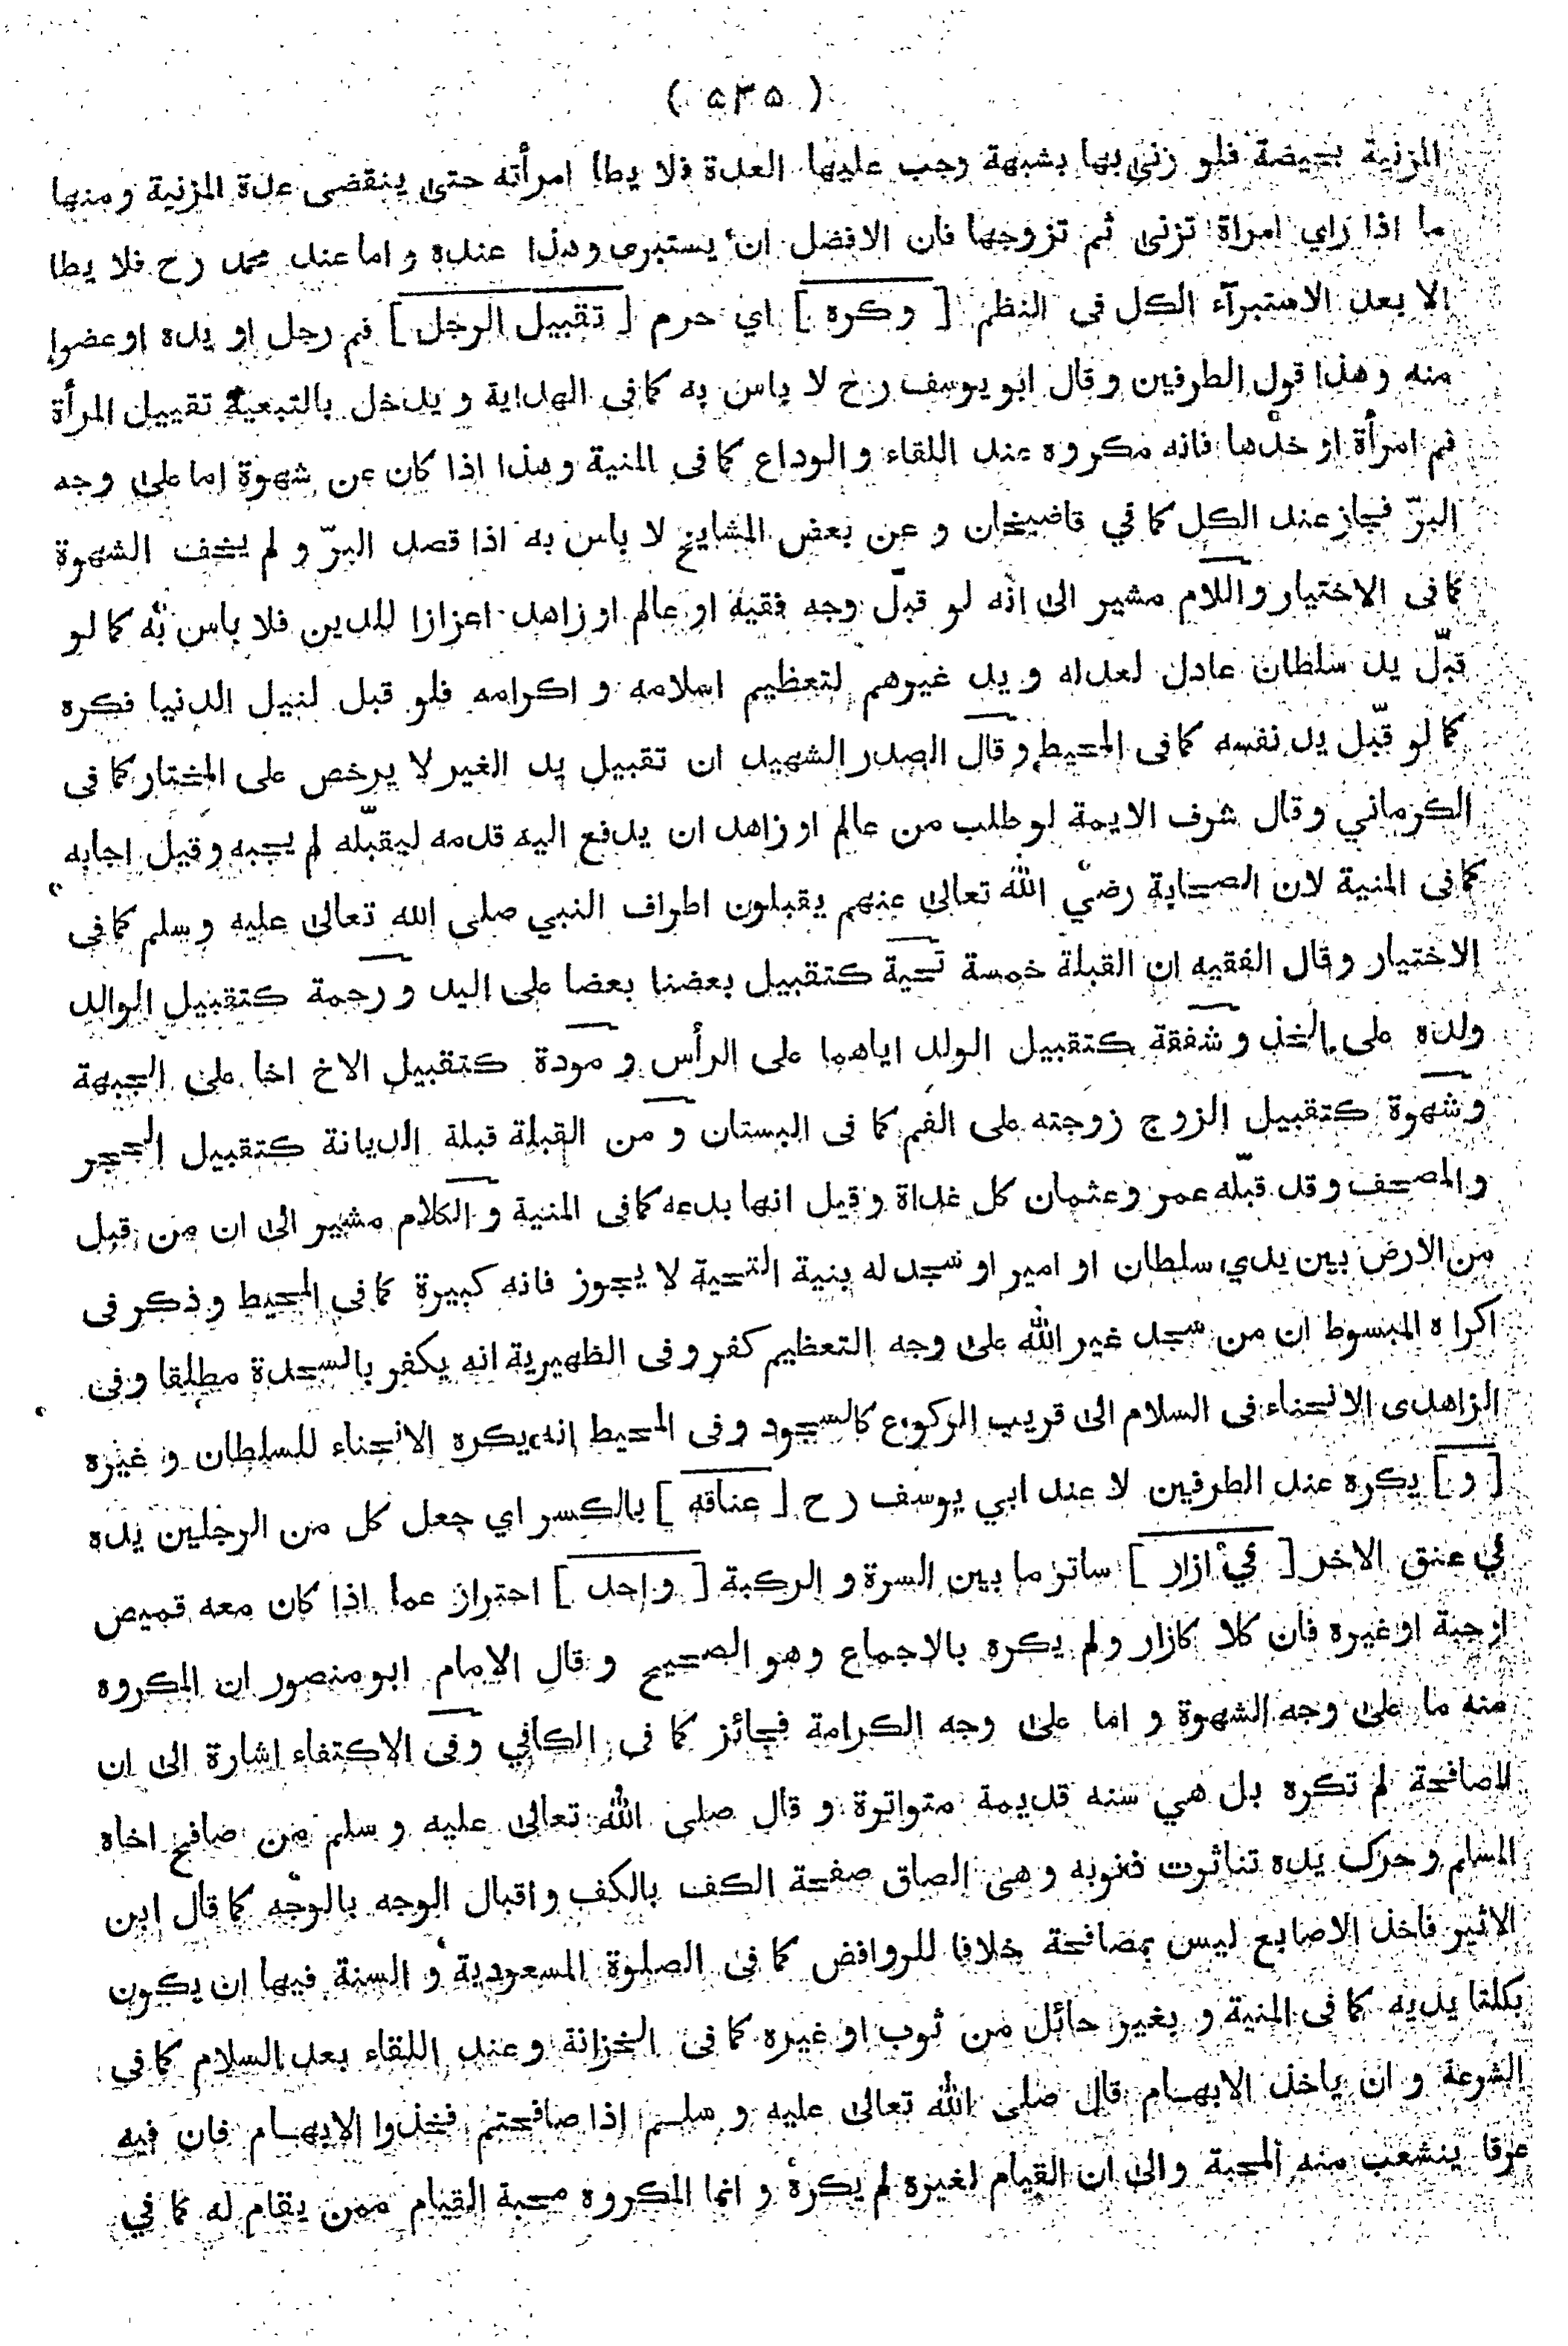 ( ۵۳۵ )
المزنية بحيضة فلو زنى بها بشبهة وجب عليها العدة فلا يطا امرأته حتى ينقضى عدة المزنية ومنها
ما اذا راي امراة تزنى ثم تزوجها فان الافضل ان يستبرى وهذا عنده و اما عند محمد رح فلا يطا
الا بعد الاستبرآء الكل فى النظم [ وكره ] اي حرم [ تقبيل الرجل ] فم رجل او يده اوعضوا
منه وهذا قول الطرفين وقال ابو يوسف رح لا باس به كما فى الهداية ويدخل بالتبعية تقبيل المرأة
فم امرأة او خدها فانه مكروه عند اللقاء والوداع كما فى المنية وهذا اذا كان عن شهوة اما على وجه
البرّ فجاز عند الكل كما في قاضيخان و عن بعض المشايخ لا باس به اذا قصد البرّ و لم يخف الشهوة
كما فى الاختيار واللام مشير الى انه لو قبّل وجه فقيه او عالم او زاهد اعزازا للدين فلا باس به كما لو
قبّل يد سلطان عادل لعدله و يد غيرهم لتعظيم اسلامه و اكرامه فلو قبل لنيل الدنيا فكره
كما لو قبّل يد نفسه كما فى المحيط وقال الصدر الشهيد ان تقبيل يد الغير لا يرخص على المختار كما فى
الكرماني وقال شرف الايمة لو طلب من عالم او زاهد ان يدفع اليه قدمه ليقبّله لم يجبه وقيل اجابه
كما فى المنية لان الصحابة رضي الله تعالى عنهم يقبلون اطراف النبي صلى الله تعالى عليه وسلم كما فى
الاختيار وقال الفقيه ان القبلة خمسة تحية كتقبيل بعضنا بعضا على اليد و رحمة كتقبيل الوالد
ولده على الخد وشفقة كتقبيل الولد اياهما على الرأس و مودة كتقبيل الاخ اخا على الجبهة
وشهوة كتقبيل الزوج زوجته على الفم كما فى البستان و من القبلة قبلة الديانة كتقبيل الحجر
والمصحف وقد قبّله عمر وعثمان كل غداة وقيل انها بدعه كما فى المنية و الكلام مشير الى ان من قبل
من الارض بين يدي سلطان او امير او سجد له بنية التحية لا يجوز فانه كبيرة كما فى المحيط وذكر فى
اكراه المبسوط ان من سجد غير الله على وجه التعظيم كفر و فى الظهيرية انه يكفر بالسجدة مطلقا وفى
الزاهدى الانحناء فى السلام الى قريب الركوع كالسجود وفى المحيط انه يكره الانحناء للسلطان و غيره
[ و ] يكره عند الطرفين لا عند ابي يوسف رح [ عناقه ] بالكسر اي جعل كل من الرجلين يده
في عنق الاخر [ في ازار ] ساتر ما بين السرة و الركبة [ واحد ] احتراز عما اذا كان معه قميص
اوجبة اوغيره فان كلا كازار ولم يكره بالاجماع وهو الصحيح و قال الامام ابو منصور ان المكروه
منه ما على وجه الشهوة و اما على وجه الكرامة فجائز كما فى الكافي وفى الاكتفاء اشارة الى ان
المصافحة لم تكره بل هي سنه قديمة متواترة و قال صلى الله تعالى عليه و سلم من صافح اخاه
المسلم و حرك يده تناثرت ذنوبه و هى الصاق صفحة الكف بالكف واقبال الوجه بالوجه كما قال ابن
الاثير فاخذ الاصابع ليس بمصافحة خلافا للروافض كما فى الصلوة المسعودية و السنة فيها ان يكون
بكلتا يديه كما فى المنية و بغير حائل من ثوب او غيره كما فى الخزانة وعند اللقاء بعد السلام كما فى
الشرعة و ان ياخذ الابهام قال صلى الله تعالى عليه و سلم اذا صافحتم فخذوا الابهام فان فيه
عرقا ينشعب منه المحبة والى ان القيام لغيره لم يكره و انما المكروه محبة القيام ممن يقام له كما في